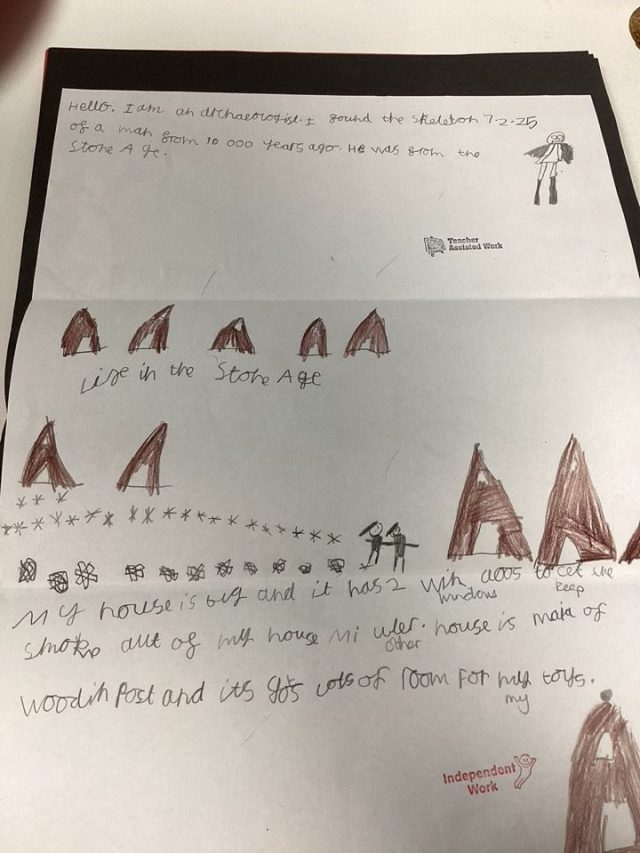 Hello. I am an archaeologist. I gound the skeleton 7.2.25
of a man grom 10 000 years ago. He was grom the
Stone Age.
Teacher
Assisted Work
Lige in the Stone Age
My house is big and it has 2 win doos to cet the
windows
keep
smoke aut of my house Mi uler. house is maid of
other
woodin Post and its gos lots of room for my toys.
my
Independent
Work